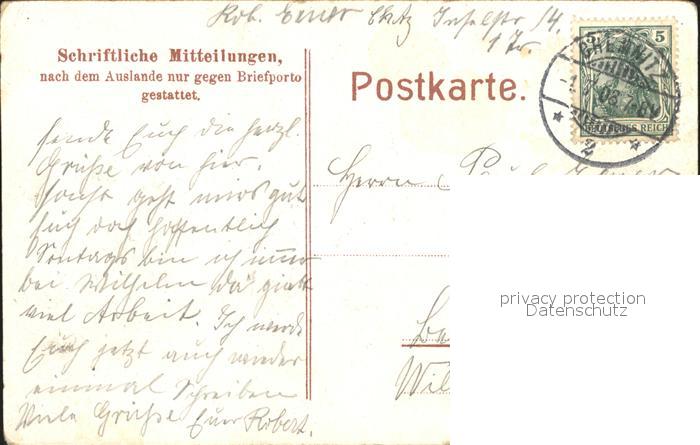 Rob. Ebner Chtz Inselstr 14.
Schriftliche Mitteilungen,
nach dem Auslande nur gegen Briefporto
gestattet.
Postkarte.
5 5
CHEMNITZ
DEUTSCHES REICH
2
sende Euch die herzl.
Grüße von hier.
sonst geht mirs gut
Euch doch hoffentlich
Sontags bin ich immer
bei Wilhelm da giebts
viel Arbeit. Ich werde
Euch jetzt auch wieder
einmal Schreiben
Viele Grüße Euer Robert.
Herrn Paul
Wil
privacy protection
Datenschutz